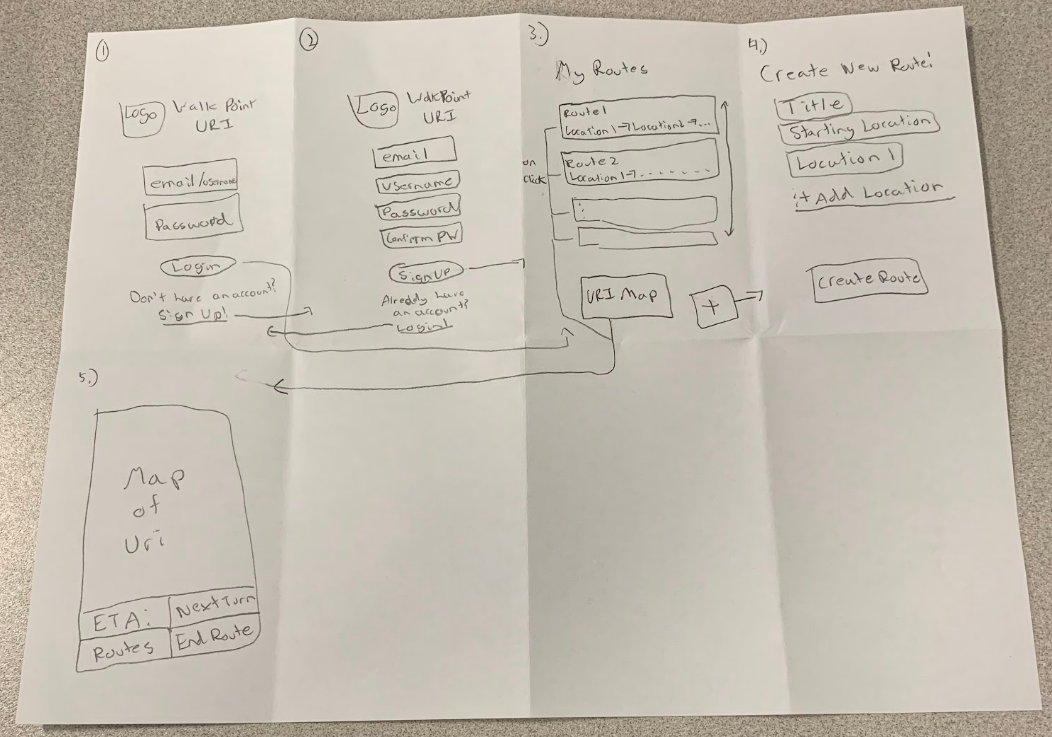 1
Logo
Walk Point
URI
email/username
Password
Login
Don't have an account?
Sign Up!
2
Logo
WalkPoint
URI
email
Username
Password
Confirm PW
Sign Up
Already have
an account?
Login!
3.)
My Routes
Route 1
Location 1 → Location 2 → ...
Route 2
Location 1 → ........
on
click
:
URI Map
+
4.)
Create New Route!
Title
Starting Location
Location 1
:+ Add Location
Create Route
5.)
Map
of
Uri
ETA:
Next Turn
Routes
End Route